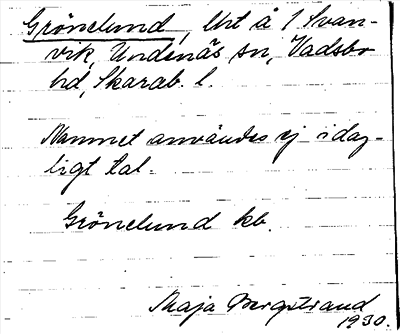 Grönelund, Urt å / Svan-
vik, Undenäs sn, Vadsbo
hd, Skarab. l.
Namnet användes ej i dag-
ligt tal.
Grönelund kb.
Maja Bergstrand
1930.